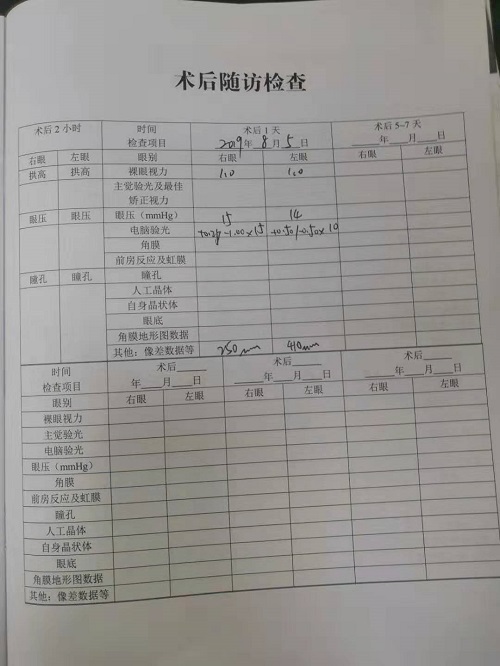 术后随访检查
术后2小时 时间 术后1天 术后5-7天
检查项目 2019年8月5日 ____年____月____日
右眼 左眼 眼别 右眼 左眼 右眼 左眼
拱高 拱高 裸眼视力 1.0 1.0
主觉验光及最佳
矫正视力
眼压 眼压 眼压(mmHg) 15 14
电脑验光 -1.00×15 +0.50/-0.50×10
角膜
前房反应及虹膜
瞳孔 瞳孔 瞳孔
人工晶体
自身晶状体
眼底
角膜地形图数据
其他:像差数据等 250um 410um
时间 术后____ 术后____ 术后____
检查项目 年____月____日 ____年____月____日 ____年____月____日
眼别 右眼 左眼 右眼 左眼 右眼 左眼
裸眼视力
主觉验光
电脑验光
眼压(mmHg)
角膜
前房反应及虹膜
瞳孔
人工晶体
自身晶状体
眼底
角膜地形图数据
其他:像差数据等